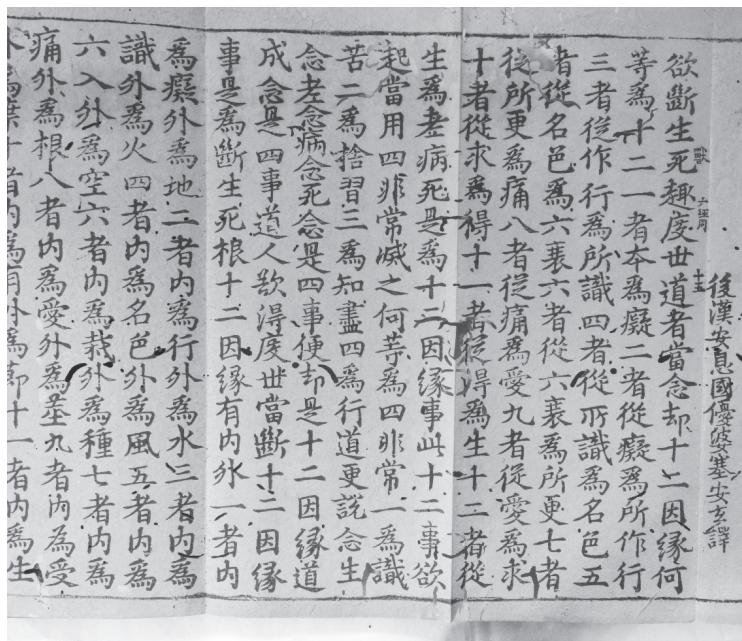 後漢安息國優婆塞安玄譯
欲斷生死趣度世道者當念却十二因緣何
等爲十二一者本爲癡二者從癡爲所作行
三者從作行爲所識四者從所識爲名色五
者從名色爲六衰六者從六衰爲所更七者
從所更爲痛八者從痛爲愛九者從愛爲求
十者從求爲得十一者從得爲生十二者從
生爲老病死是爲十二因緣事此十二事欲
起當用四非常滅之何等爲四非常一爲識
苦二爲捨習三爲知盡四爲行道更說念生
念老念病念死念是四事便却是十二因緣道
成念是四事道人欲得度世當斷十二因緣
事是爲斷生死根十二因緣有內外一者內
爲癡外爲地二者內爲行外爲水三者內爲
識外爲火四者內爲名色外爲風五者內爲
六入外爲空六者內爲栽外爲種七者內爲
痛外爲根八者內爲愛外爲莖九者內爲受
外爲葉十者內爲有外爲節十一者內爲生